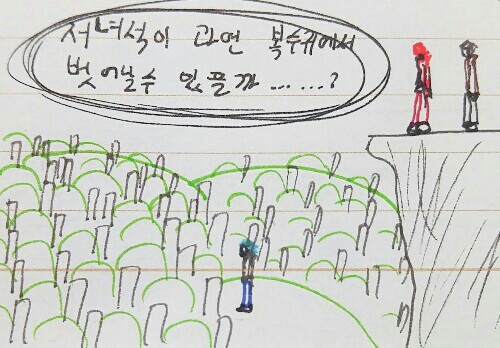 저녀석이 과연 복수귀에서
벗어날수 있을까......?